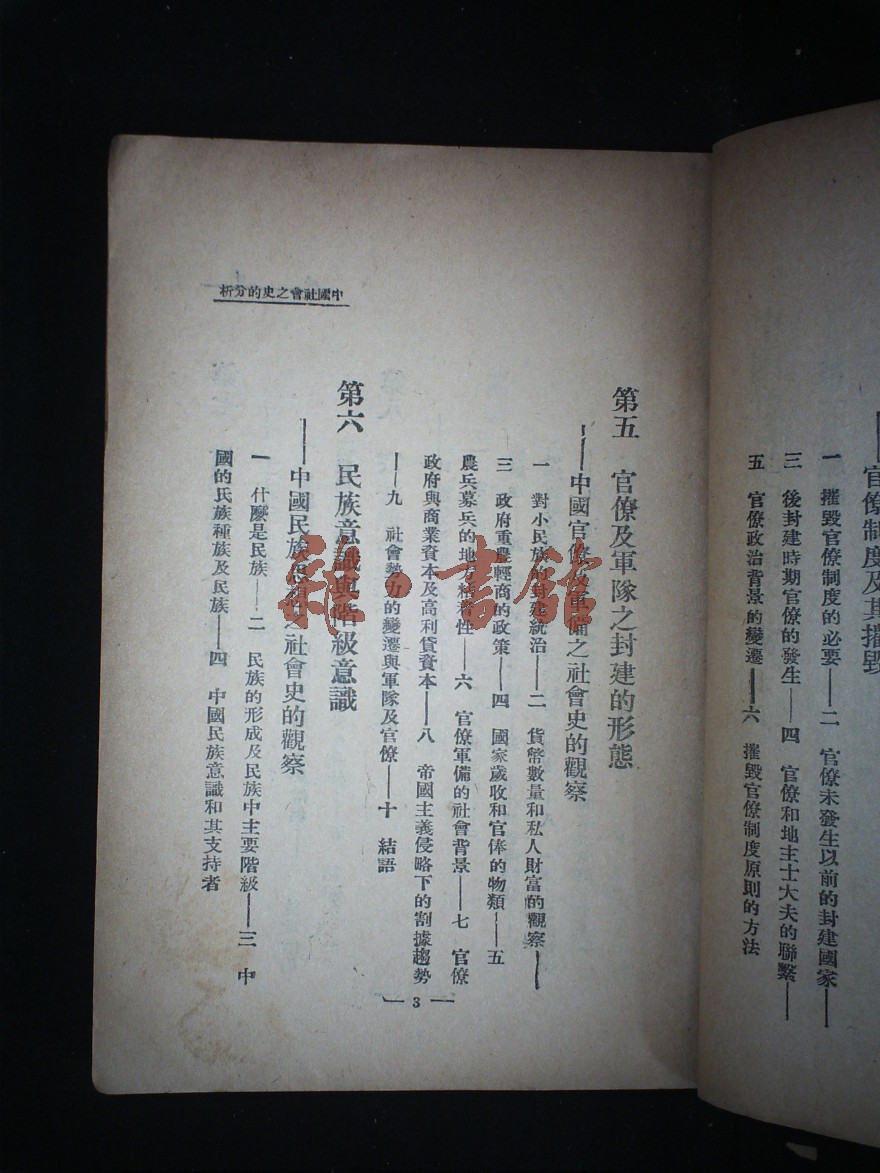 官僚制度及其摧毀
一 摧毀官僚制度的必要——二 官僚未發生以前的封建國家——
三 後封建時期官僚的發生——四 官僚和地主士大夫的聯繫——
五 官僚政治背景的變遷——六 摧毀官僚制度原則的方法
中國社會之史的分析
第五 官僚及軍隊之封建的形態
——中國官僚及軍備之社會史的觀察
一 對小民族的封建統治——二 貨幣數量和私人財富的觀察——
三 政府重農輕商的政策——四 國家歲收和官俸的物類——五
農兵募兵的地方粘着性——六 官僚軍備的社會背景——七 官僚
政府與商業資本及高利貸資本——八 帝國主義侵略下的割據趨勢
——九 社會勢力的變遷與軍隊及官僚——十 結語
第六 民族意識與階級意識
——中國民族思想之社會史的觀察
一 什麼是民族——二 民族的形成及民族中主要階級——三 中
國的氏族種族及民族——四 中國民族意識和其支持者
3